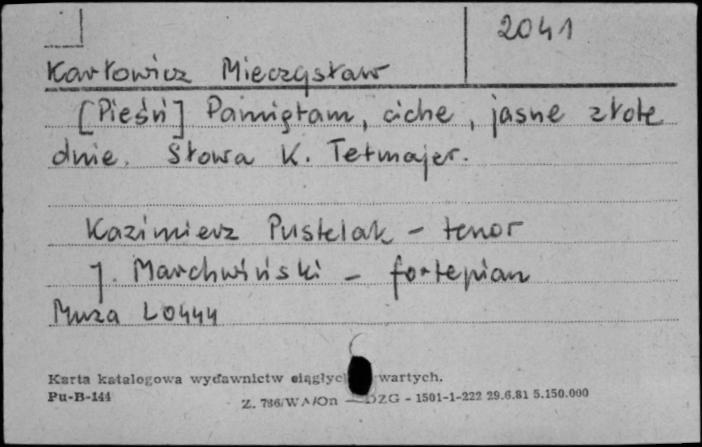 2041
Karłowicz Mieczysław
[Pieśń] Pamiętam, ciche, jasne złote
dnie. Słowa K. Tetmajer.
Kazimierz Pustelak – tenor
J. Marchwiński – fortepian
Muza L0444
Karta katalogowa wydawnictw ciągłyc wartych.
Pu-B-144
Z. 786/WA/On — DZG - 1501-1-222 29.6.81 5.150.000